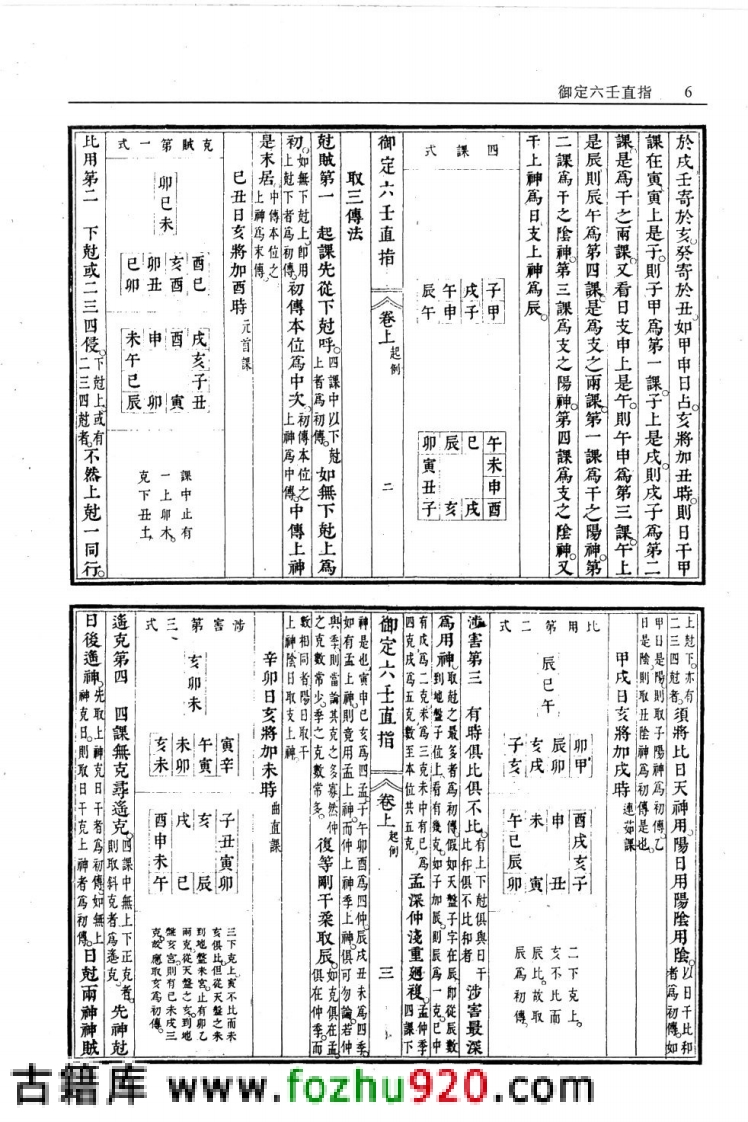 御定六壬直指 6
於戌壬寄於亥癸寄於丑如甲申日占亥將加丑時則日干甲
課在寅寅上是子則子甲爲第一課子上是戌則戌子爲第二
課是爲干之兩課又看日支申上是午則午申爲第三課午上
是辰則辰午爲第四課是爲支之兩課第一課爲干之陽神第
二課爲干之陰神第三課爲支之陽神第四課爲支之陰神又
干上神爲日支上神爲辰
四課式
子甲
戌子
午申
辰午
午未申酉
巳 戌
辰 亥
卯寅丑子
御定六壬直指 卷上 起例 二
取三傳法
尅賊第一 起課先從下尅呼四課中以下尅上者爲初傳如無下尅上爲
初如無下尅上即用上尅下者爲初傳初傳本位爲中次初傳本位之上神爲中傳中傳上神
是末居中傳本位之上神爲末傳
巳丑日亥將加酉時 元首課
克賊第一式
卯巳未
酉巳
亥酉
卯丑
巳卯
戌亥子丑
酉 寅
申 卯
未午巳辰
課中止有
一上卯木
克下丑土
比用第二 下尅或二三四侵下尅上或有二三四尅者不然上尅一同行
上尅下亦有二三四尅者須將比日天神用陽日用陽陰用陰以日干比和者爲初傳如
甲日是陽則取子陽神爲初傳乙
日是陰則取丑陰神爲初傳是也
甲戌日亥將加戌時 連茹課
比用第二式
辰巳午
卯甲
辰卯
亥戌
子亥
酉戌亥子
申 丑
未 寅
午巳辰卯
二下克上
亥不比而
辰比故取
辰爲初傳
涉害第三 有時俱比俱不比有上下尅俱與日干比和俱不比和者 涉害最深
爲用神取尅之最多者爲初傳假如天盤子字在辰即從辰數到地盤子位上看有幾克如子加辰則辰爲一克巳中
有戊爲二克未爲三克未中有巳爲四克戌爲五克數至本位共五克 孟深仲淺重廻複孟仲季四課下
御定六壬直指 卷上 起例 三
神是也寅申巳亥爲四孟子午卯酉爲四仲辰戌丑未爲四季
如有孟上神則竟用孟上神而仲上神季上神俱可勿論若仲
與季則當論其克之多寡然仲之克數常少季之克數常多 復等剛干柔取辰如克俱在孟俱在仲季而
數相同者陽日取干上神陰日取支上神
辛卯日亥將加未時 曲直課
涉害第三式
亥卯未
寅辛
午寅
未卯
亥未
子丑寅卯
亥 辰
戌 巳
酉申未午
三下克上寅不比而未
亥俱比但從天盤之未
到地盤未宮止有卯乙
兩克從天盤之亥到地
盤亥宮則有巳未戌三
克故應取亥爲初傳
遙克第四 四課無克尋遙克四課中無上下正克者則取斜克者爲遙克先神尅
日後遙神先取上神克日干者爲初傳如無上神克日則取日干克上神者爲初傳日尅兩神神賊
古籍库 www.fozhu920.com